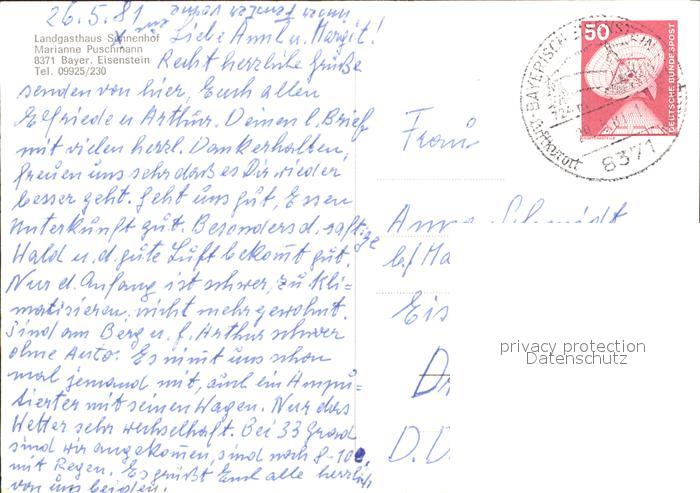 26.5.81
Landgasthaus Sonnenhof
Marianne Puschmann
8371 Bayer. Eisenstein
Tel. 09925/230
Liebe Annl u. Margit!
Recht herzliche Grüße
senden von hier, Euch allen
Elfriede u. Arthur. Deinen l. Brief
mit vielen herzl. Dank erhalten,
freuen uns sehr daß es Dir wieder
besser geht. Geht uns gut, Essen
Unterkunft gut. Besonders d. saftige
Wald u. d. gute Luft bekomt gut.
Nur d. Anfang ist schwer, zu kli-
matisieren, nicht mehr gewohnt.
Sind am Berg u. f. Arthur schwer
ohne Auto. Es nimt uns schon
mal jemand mit, auch ein Ampu-
tierter mit seinen Wagen. Nur das
Wetter sehr wechselhaft. Bei 33 Grad
sind wir angekommen, sind noch 8-10
mit Regen. Es grüßt Euch alle herzlich
von uns beiden.
50
DEUTSCHE BUNDESPOST
BAYERISCH EISENSTEIN
Luftkurort
8371
Frau
Anna Schmidt
b/ Ma
Eis
D.D
privacy protection
Datenschutz